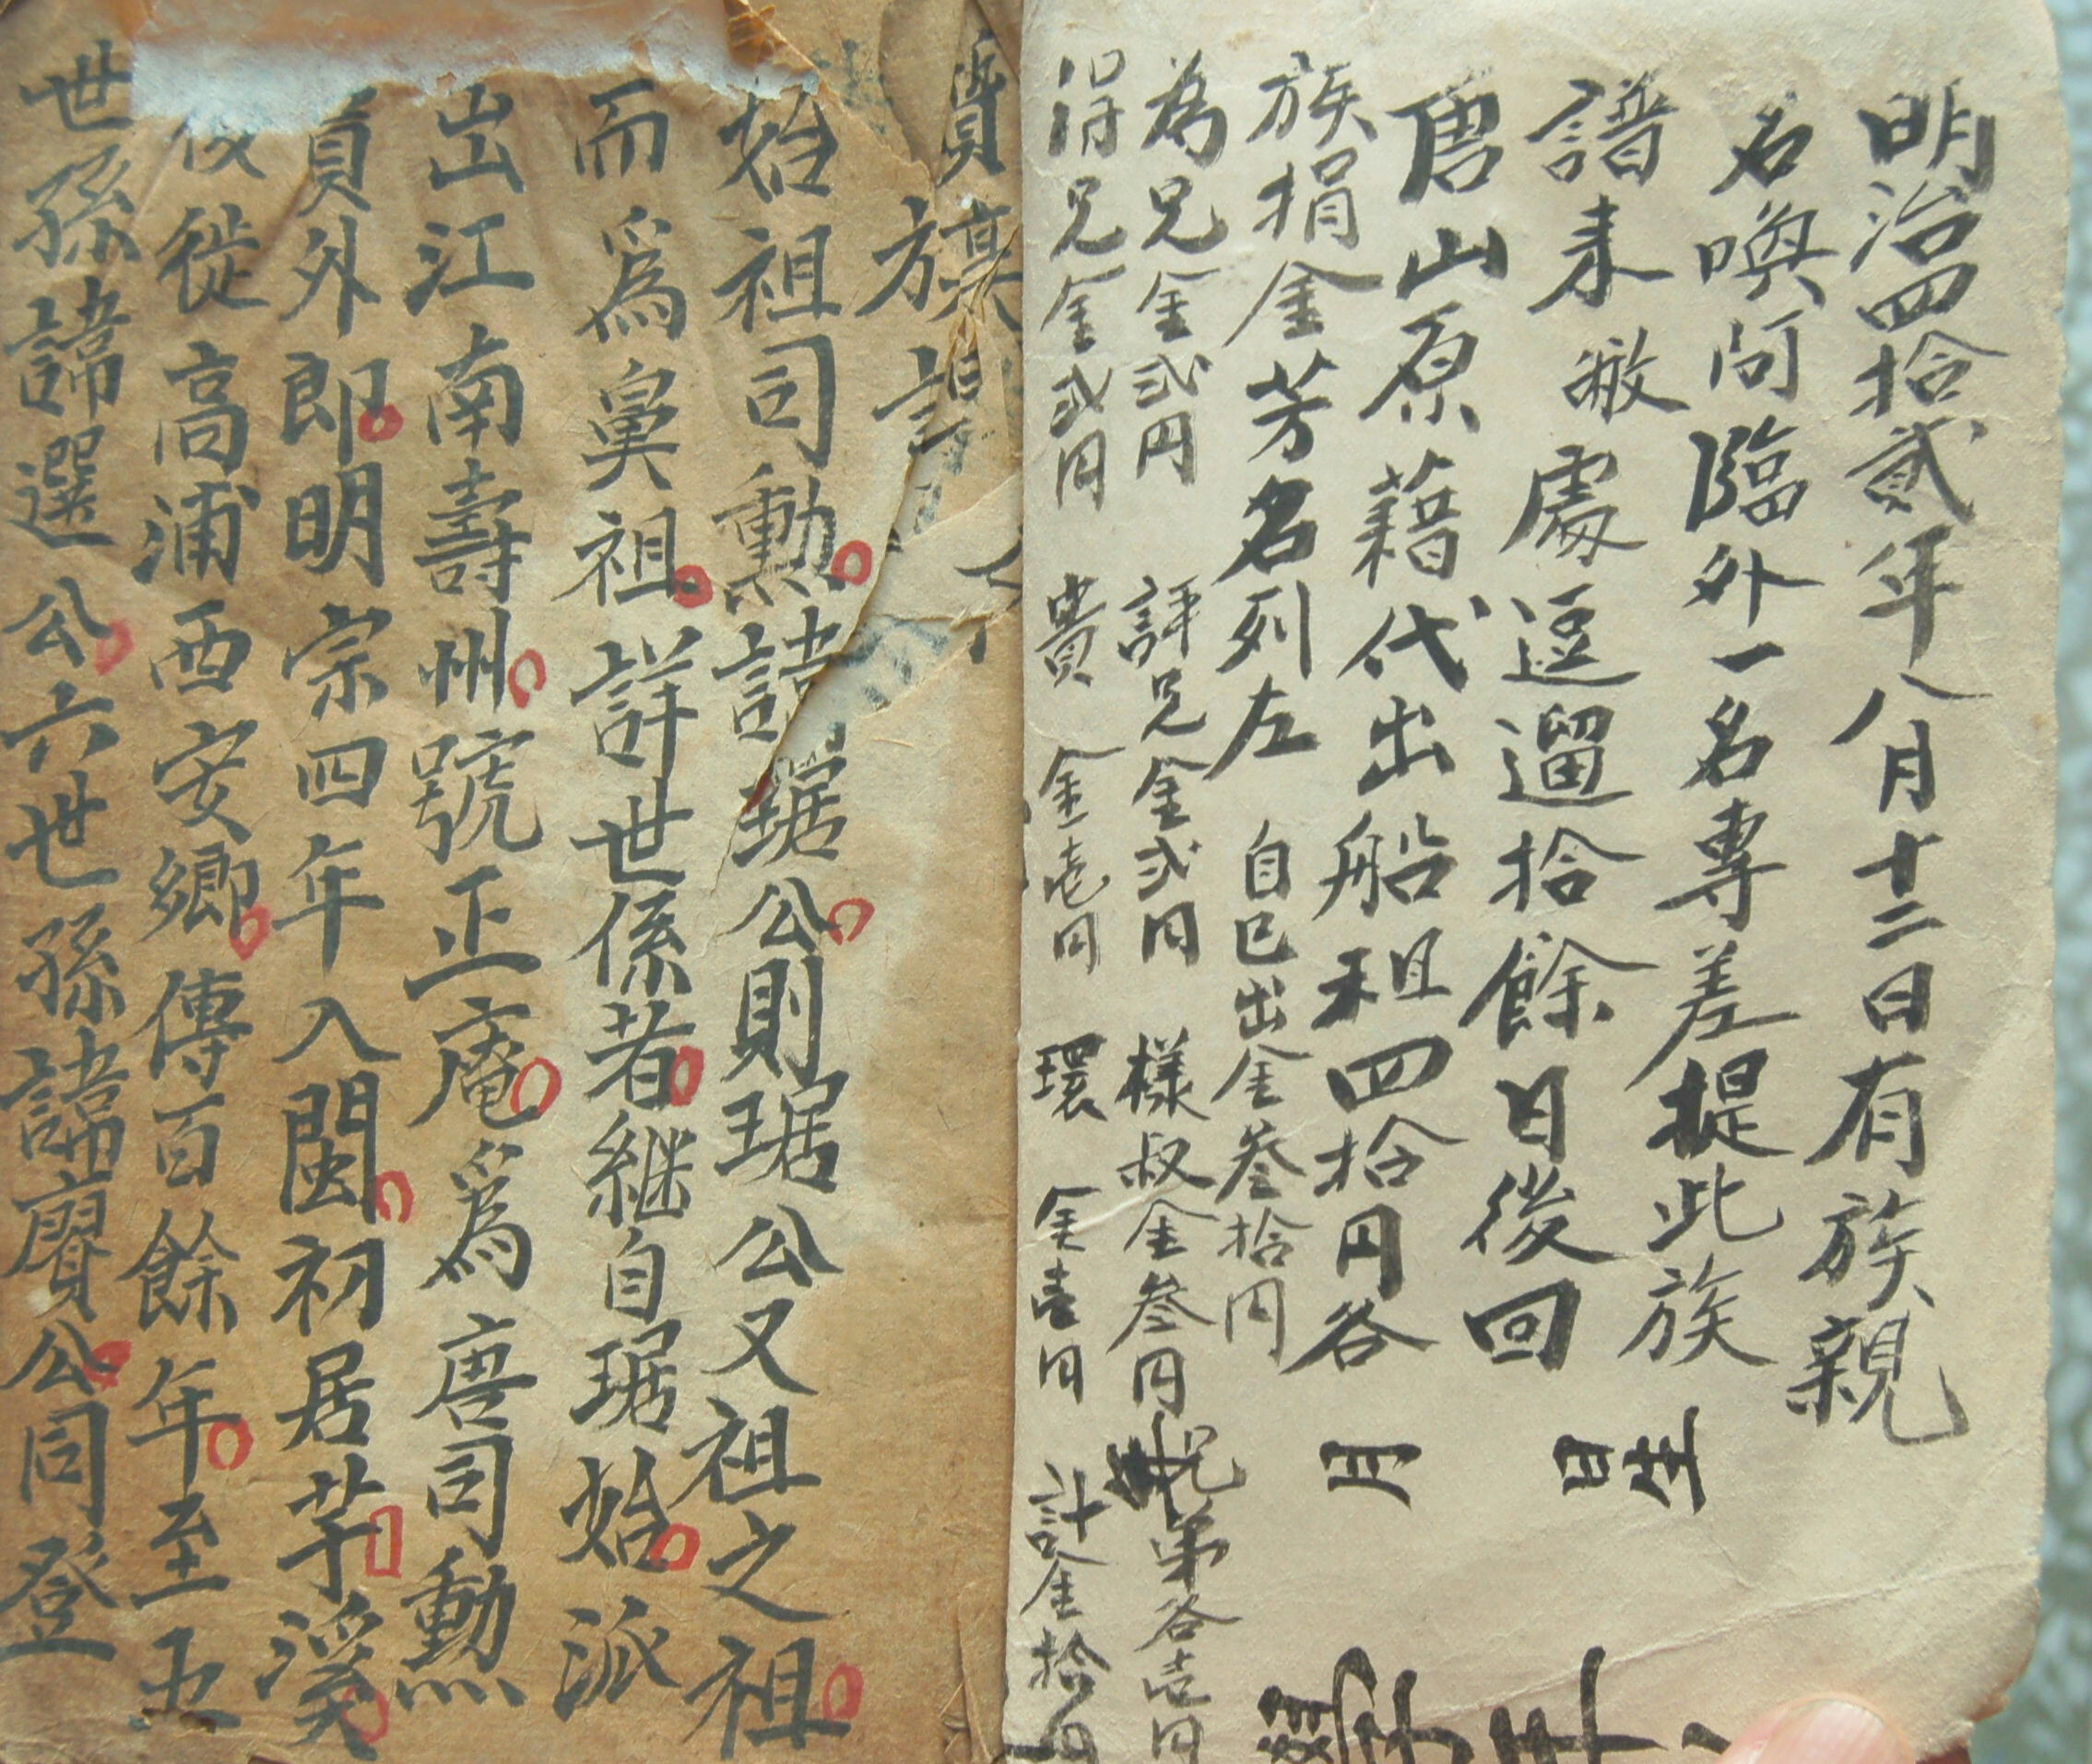 明治四拾貳年八月十二日有族親
名喚阿臨外一名專差提此族
譜来敝處逗遛拾餘日後回
唐山原藉代出船租四拾円各
族捐金芳名列左 自己出金叁拾円
為兄金弍円 評兄金弍円 様叔金叁円 兄弟各壱円
得兄金弍円 貴 金壱円 環 金壱円 計金拾
生
日
月
族譜
始祖司勳諱琚公則琚公又祖之祖
而爲鼻祖詳世係者継自琚始派
出江南壽州號正庵爲唐司勳
員外郎明宗四年入閩初居芋溪
後徙高浦西安鄉傳百餘年至五
世孫諱選公六世孫諱賡公同登